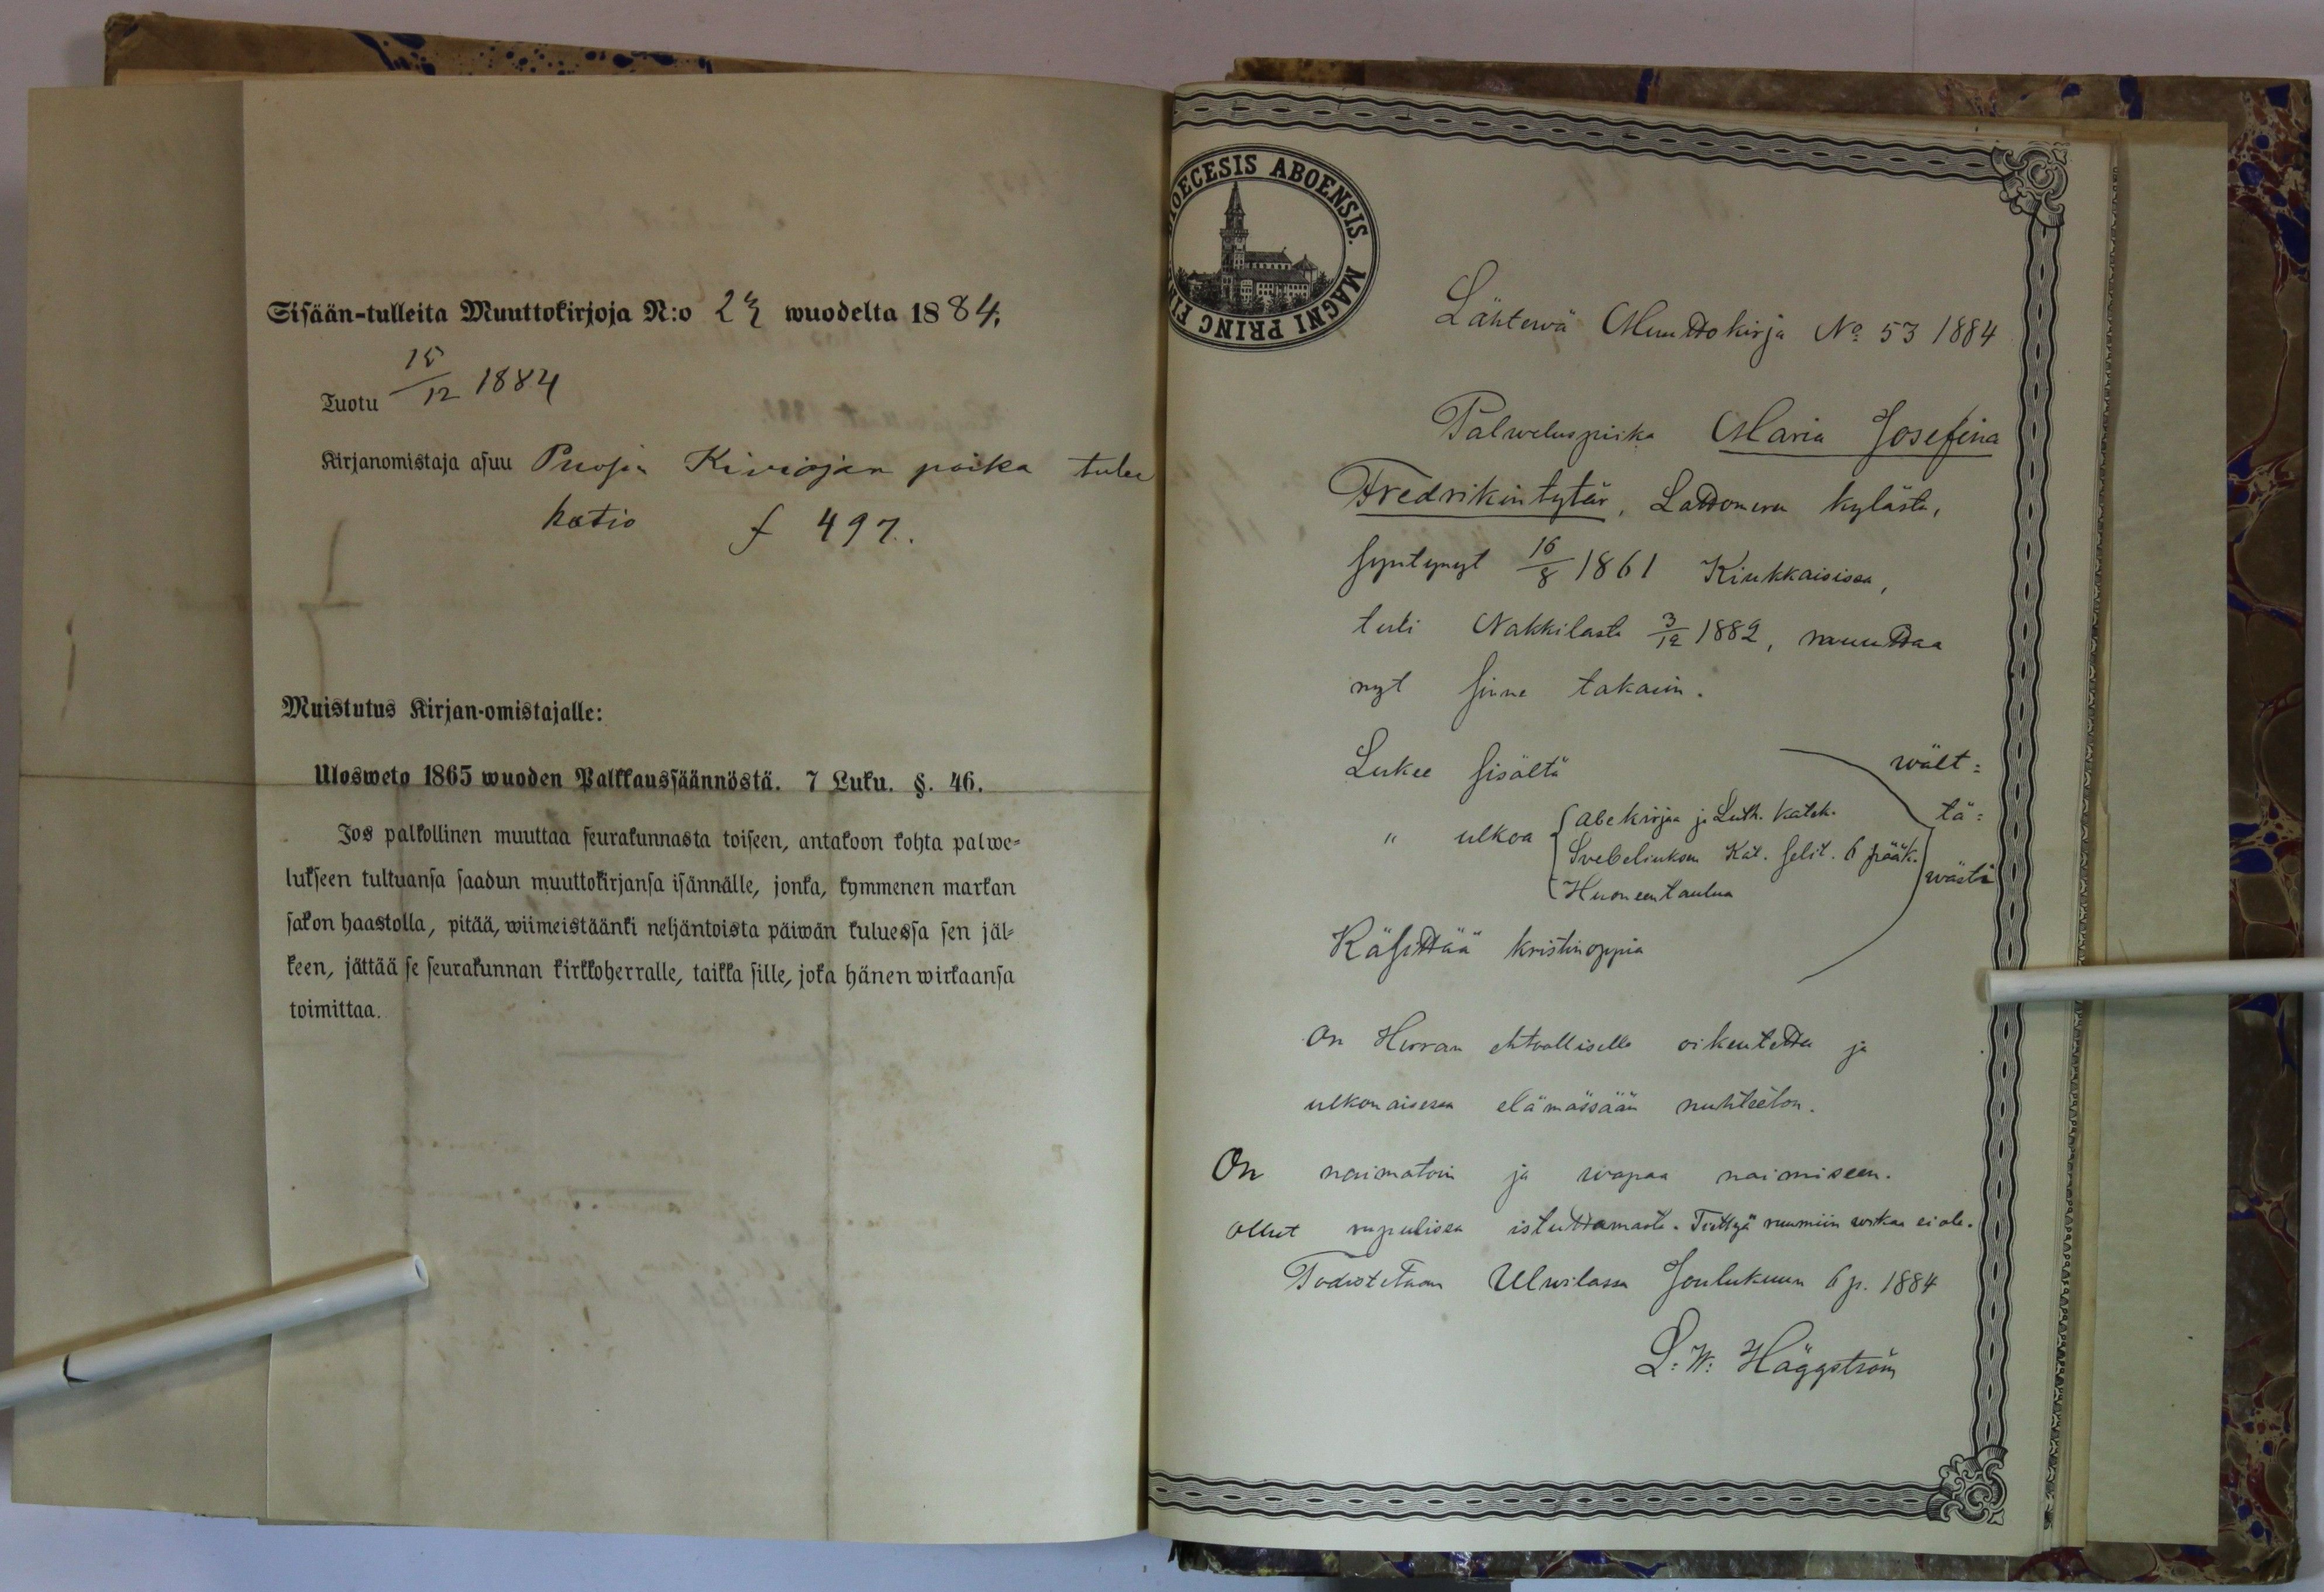 Sisään-tulleita Muuttokirjoja N:o 23 wuodelta 1884.
Tuotu 15/12 1884
Kirjanomistaja asuu Kiviojan poika tulee
f 497.
Muistutus Kirjan-omistajalle:
Ulosweto 1865 wuoden Palkkaussäännöstä. 7 Luku. §. 46.
Jos palkollinen muuttaa seurakunnasta toiseen, antakoon kohta palwe-
lukseen tultuansa saadun muuttokirjansa isännälle, jonka, kymmenen markan
sakon haastolla, pitää, wiimeistäänki neljäntoista päiwän kuluessa sen jäl-
keen, jättää se seurakunnan kirkkoherralle, taikka sille, joka hänen wirkaansa
toimittaa.
DIOECESIS ABOENSIS. MAGNI PRINC
Lähtewä Muuttokirja No 53 1884
Palweluspiika Maria Josefina
Fredrikintytär, Lattomeren kylästä,
syntynyt 16/8 1861 Kiukkaisissa,
tuli Nakkilasta 3/12 1882, muuttaa
nyt sinne takasin.
Lukee sisältä wält-
" ulkoa abekirjaa ja Luth. katek. tä-
Svebeliuksen Kat. selit. 6 pääk. wästi
Huoneentaulua
Käsittää kristinoppia
On Herran ehtoolliselle oikeutettu ja
ulkonaisessa elämässään nuhteeton.
On naimatoin ja wapaa naimiseen.
ollut rupulissa istuttamasta. Tiettyä ruumiin wikaa ei ole.
Todistetaan Ulwilassa Joulukuun 6 p. 1884
L. W. Häggström